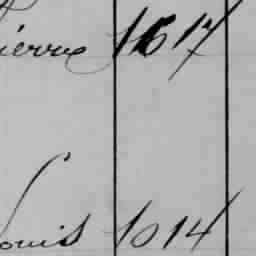 Pierre 1617
Louis 1014